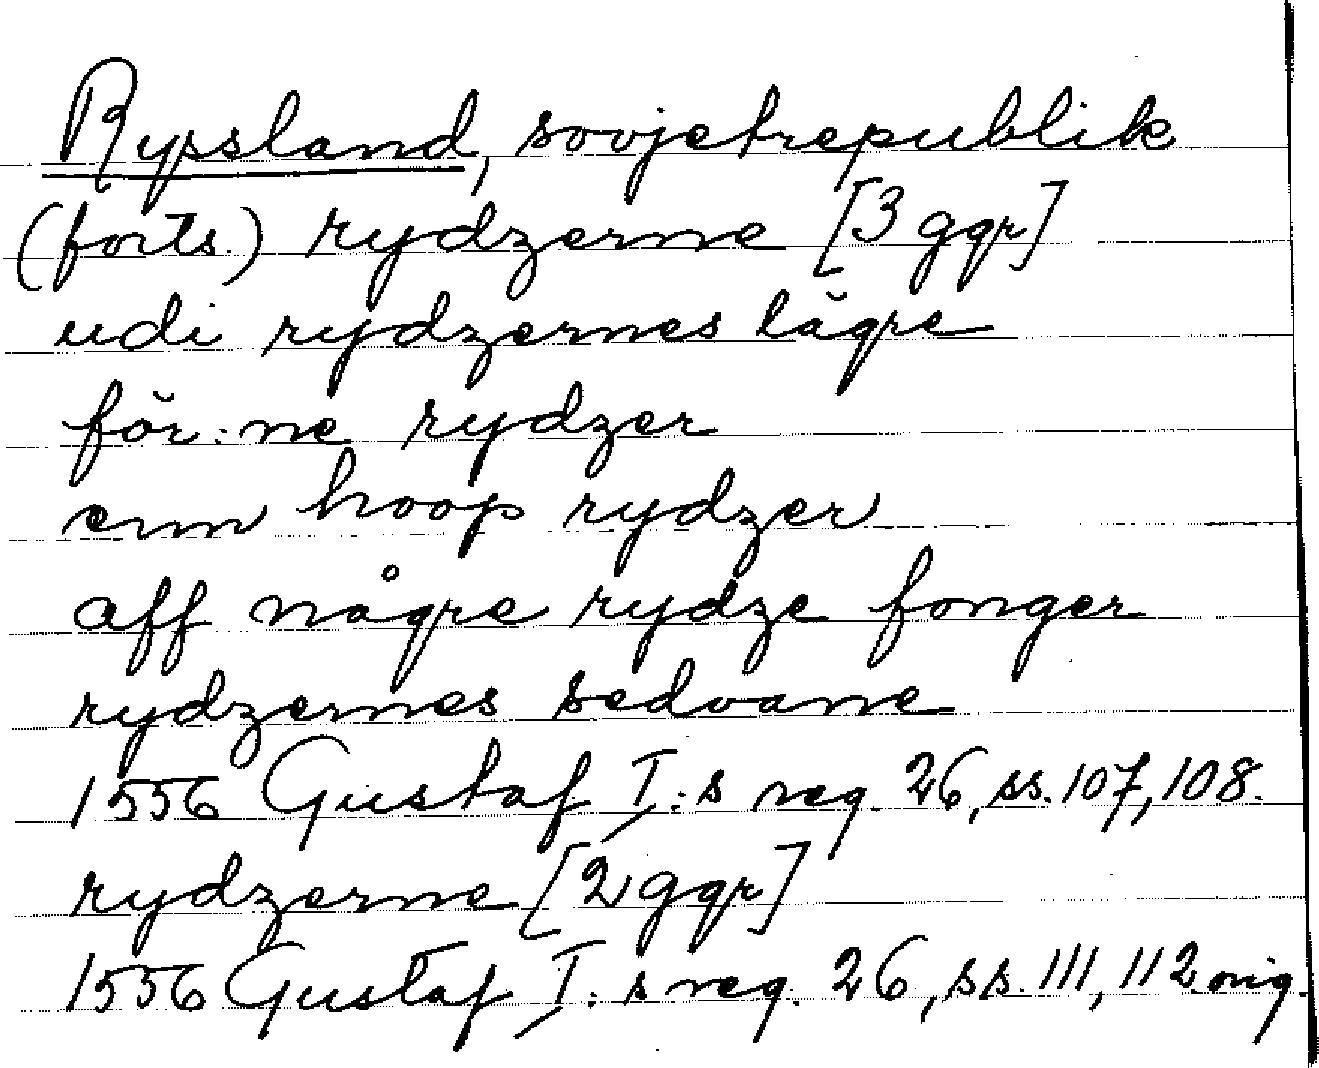 Ryssland, sovjetrepublik
(forts.) rydzerne [3 ggr]
udi rydzernes lägre
för:ne rydzer
enn hoop rydzer
aff någre rydze fonger
rydzernes sedvane
1556 Gustaf I:s reg. 26, ss. 107, 108.
rydzerne [2 ggr]
1556 Gustaf I:s reg. 26, ss. 111, 112 orig.